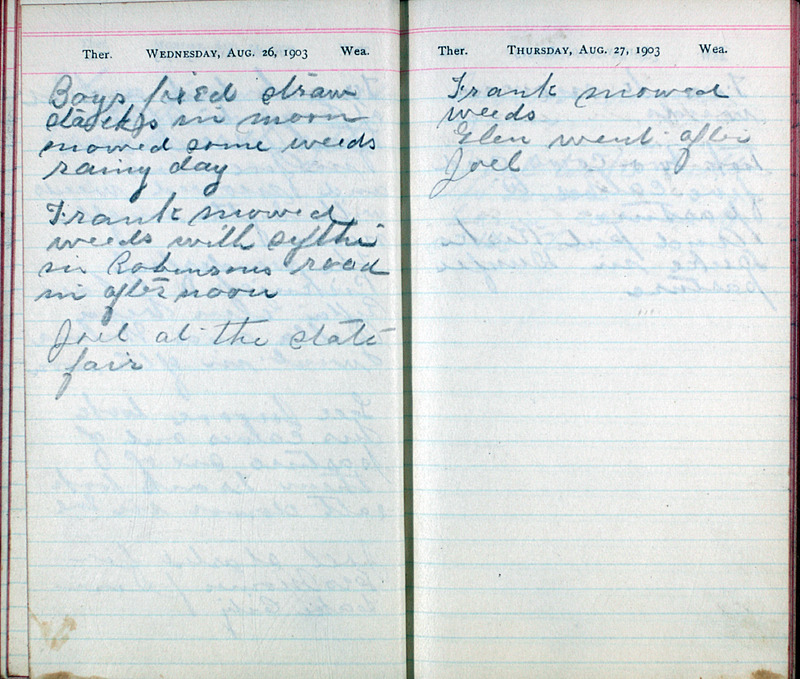 Ther. Wednesday, Aug. 26, 1903 Wea.
Boys fixed straw
stacks in moon
mowed some weeds
rainy day
Frank mowed
weeds with sythe
in Robinsons road
in after noon
Joel at the state
fair
Ther. Thursday, Aug. 27, 1903 Wea.
Frank mowed
weeds
Glen went after
Joel